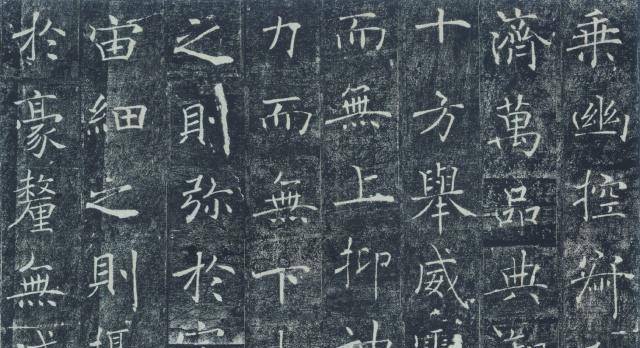 乘幽控寂
濟萬品典
十方舉威
而無上抑神
力而無下
之則弥於宇
宙細之則
於豪釐無